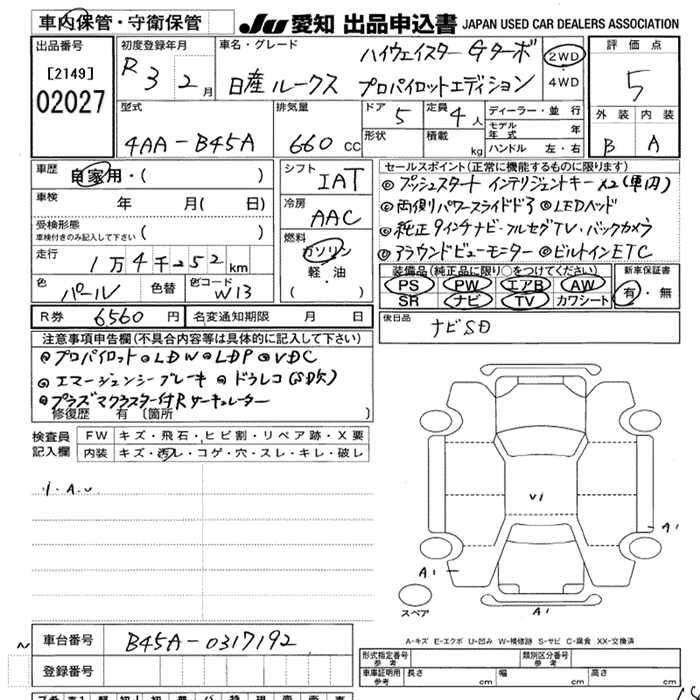 車内保管・守衛保管
JU 愛知 出品申込書 JAPAN USED CAR DEALERS ASSOCIATION
出品番号
[2149]
02027
初度登録年月
R 3 2月
車名・グレード
ハイウェイスター Gターボ
日産 ルークス プロパイロットエディション
2WD
4WD
評価点
5
外装 内装
B A
型式
4AA-B45A
排気量
660 cc
ドア 5
形状
定員 4人
積載 kg
ディーラー・並行
モデル年式 年
ハンドル 左・右
車歴 自家用・( )
車検 年 月( 日)
受検形態
車検付きのみ記入して下さい ( )
走行 1万4千252km
色 パール 色替 色コード W13
シフト IAT
冷房 AAC
燃料 ガソリン
軽・油
( )
セールスポイント(正常に機能するものに限ります)
◎プッシュスタート インテリジェントキー x2(車内)
◎両側パワースライドドア ◎LEDヘッド
◎純正9インチナビ・フルセグTV・バックカメラ
◎アラウンドビューモニター ◎ビルトインETC
装備品(純正品に限り○をつけてください)
PS PW エアB AW
SR ナビ TV カワシート
新車保証書
有・無
R券 6560円 名変通知期限 月 日
後日品
ナビSD
注意事項申告欄(不具合内容等は具体的に記入して下さい)
◎プロパイロット ◎LDW ◎LDP ◎VDC
◎エマージェンシーブレーキ ◎ドラレコ(SD欠)
◎プラズマクラスター付Rサーキュレーター
修復歴 有 〔箇所 〕
検査員記入欄
FW キズ・飛石・ヒビ割・リペア跡・X要
内装 キズ・汚レ・コゲ・穴・スレ・キレ・破レ
V1
A1
A1
A1
スペア
A-キズ E-エクボ U-凹み W-補修跡 S-サビ C-腐食 XX-交換済
車台番号 B45A-0317192
登録番号
型式指定番号 参考
類別区分番号 参考
車庫証明用 参考 長さ cm 幅 cm 高さ cm